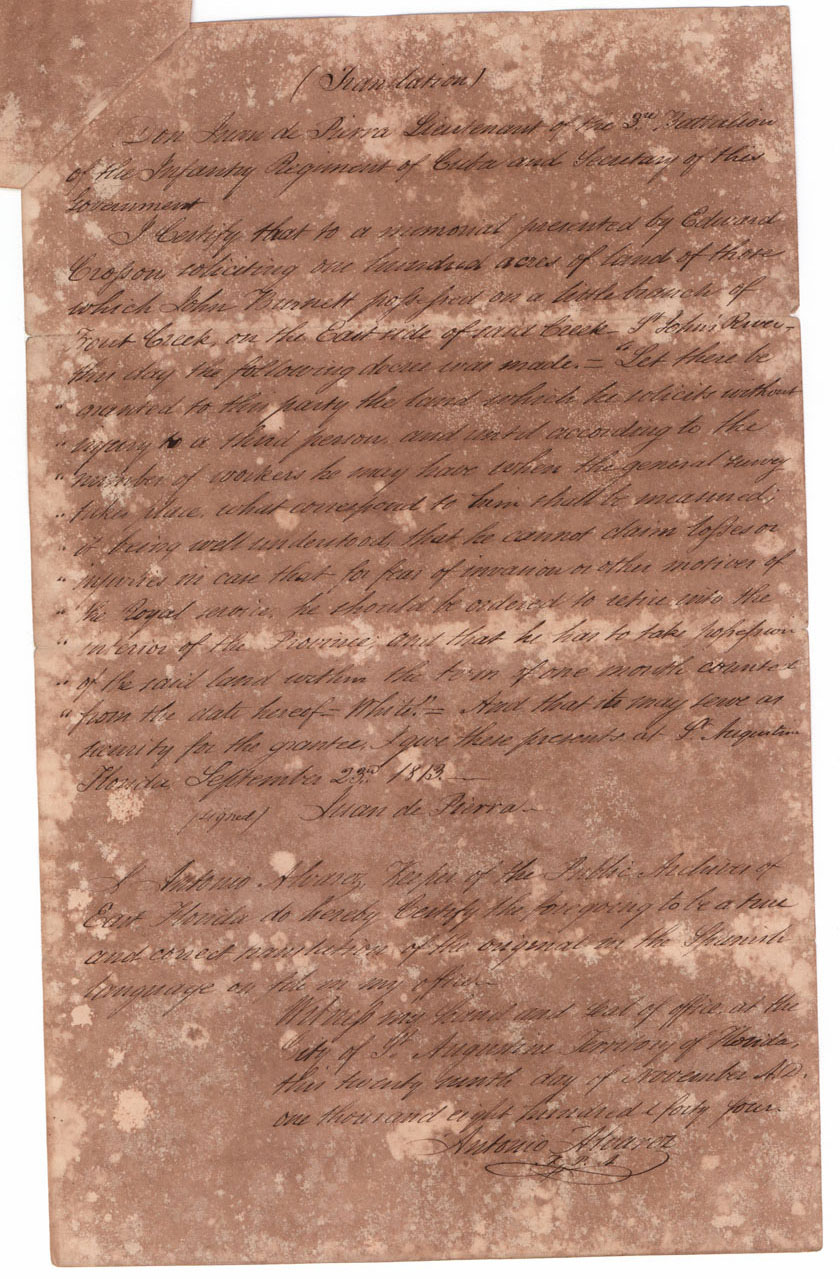 (Translation)
Don Juan de Pierra Lieutenant of the 3rd Battalion
of the Infantry Regiment of Cuba and Secretary of this
Government
I Certify that to a memorial presented by Edward
Crosson, soliciting one hundred acres of land of those
which John Burnett possessed on a little branch of
Creek, on the East side of said Creek St John's River -
this day the following decree was made. = "Let there be
" granted to this party the land which he solicits without
" injury to a third person and until according to the
" number of workers he may have when the general survey
" takes place, what correspond to him shall be measured;
" it being well understood that he cannot claim losses or
" injuries in case that for fear of invasion or other motives of
" the Royal service, he should be ordered to retire into the
" interior of the Province; and that he has to take possession
" of the said land within the term of one month counted
" from the date hereof = White." = And that it may serve as
security for the grantee, I give these presents at St Augustine
Florida September 23rd 1813 —
(signed) Juan de Pierra —
I Antonio Alvarez, Keeper of the Public Archives of
East Florida do hereby Certify the foregoing to be a true
and correct translation of the original in the Spanish
language on file in my office —
Witness my hand and seal of office, at the
City of St Augustine Territory of Florida,
this twenty day of November A.D.
one thousand eight hundred & forty four.
Antonio Alvarez